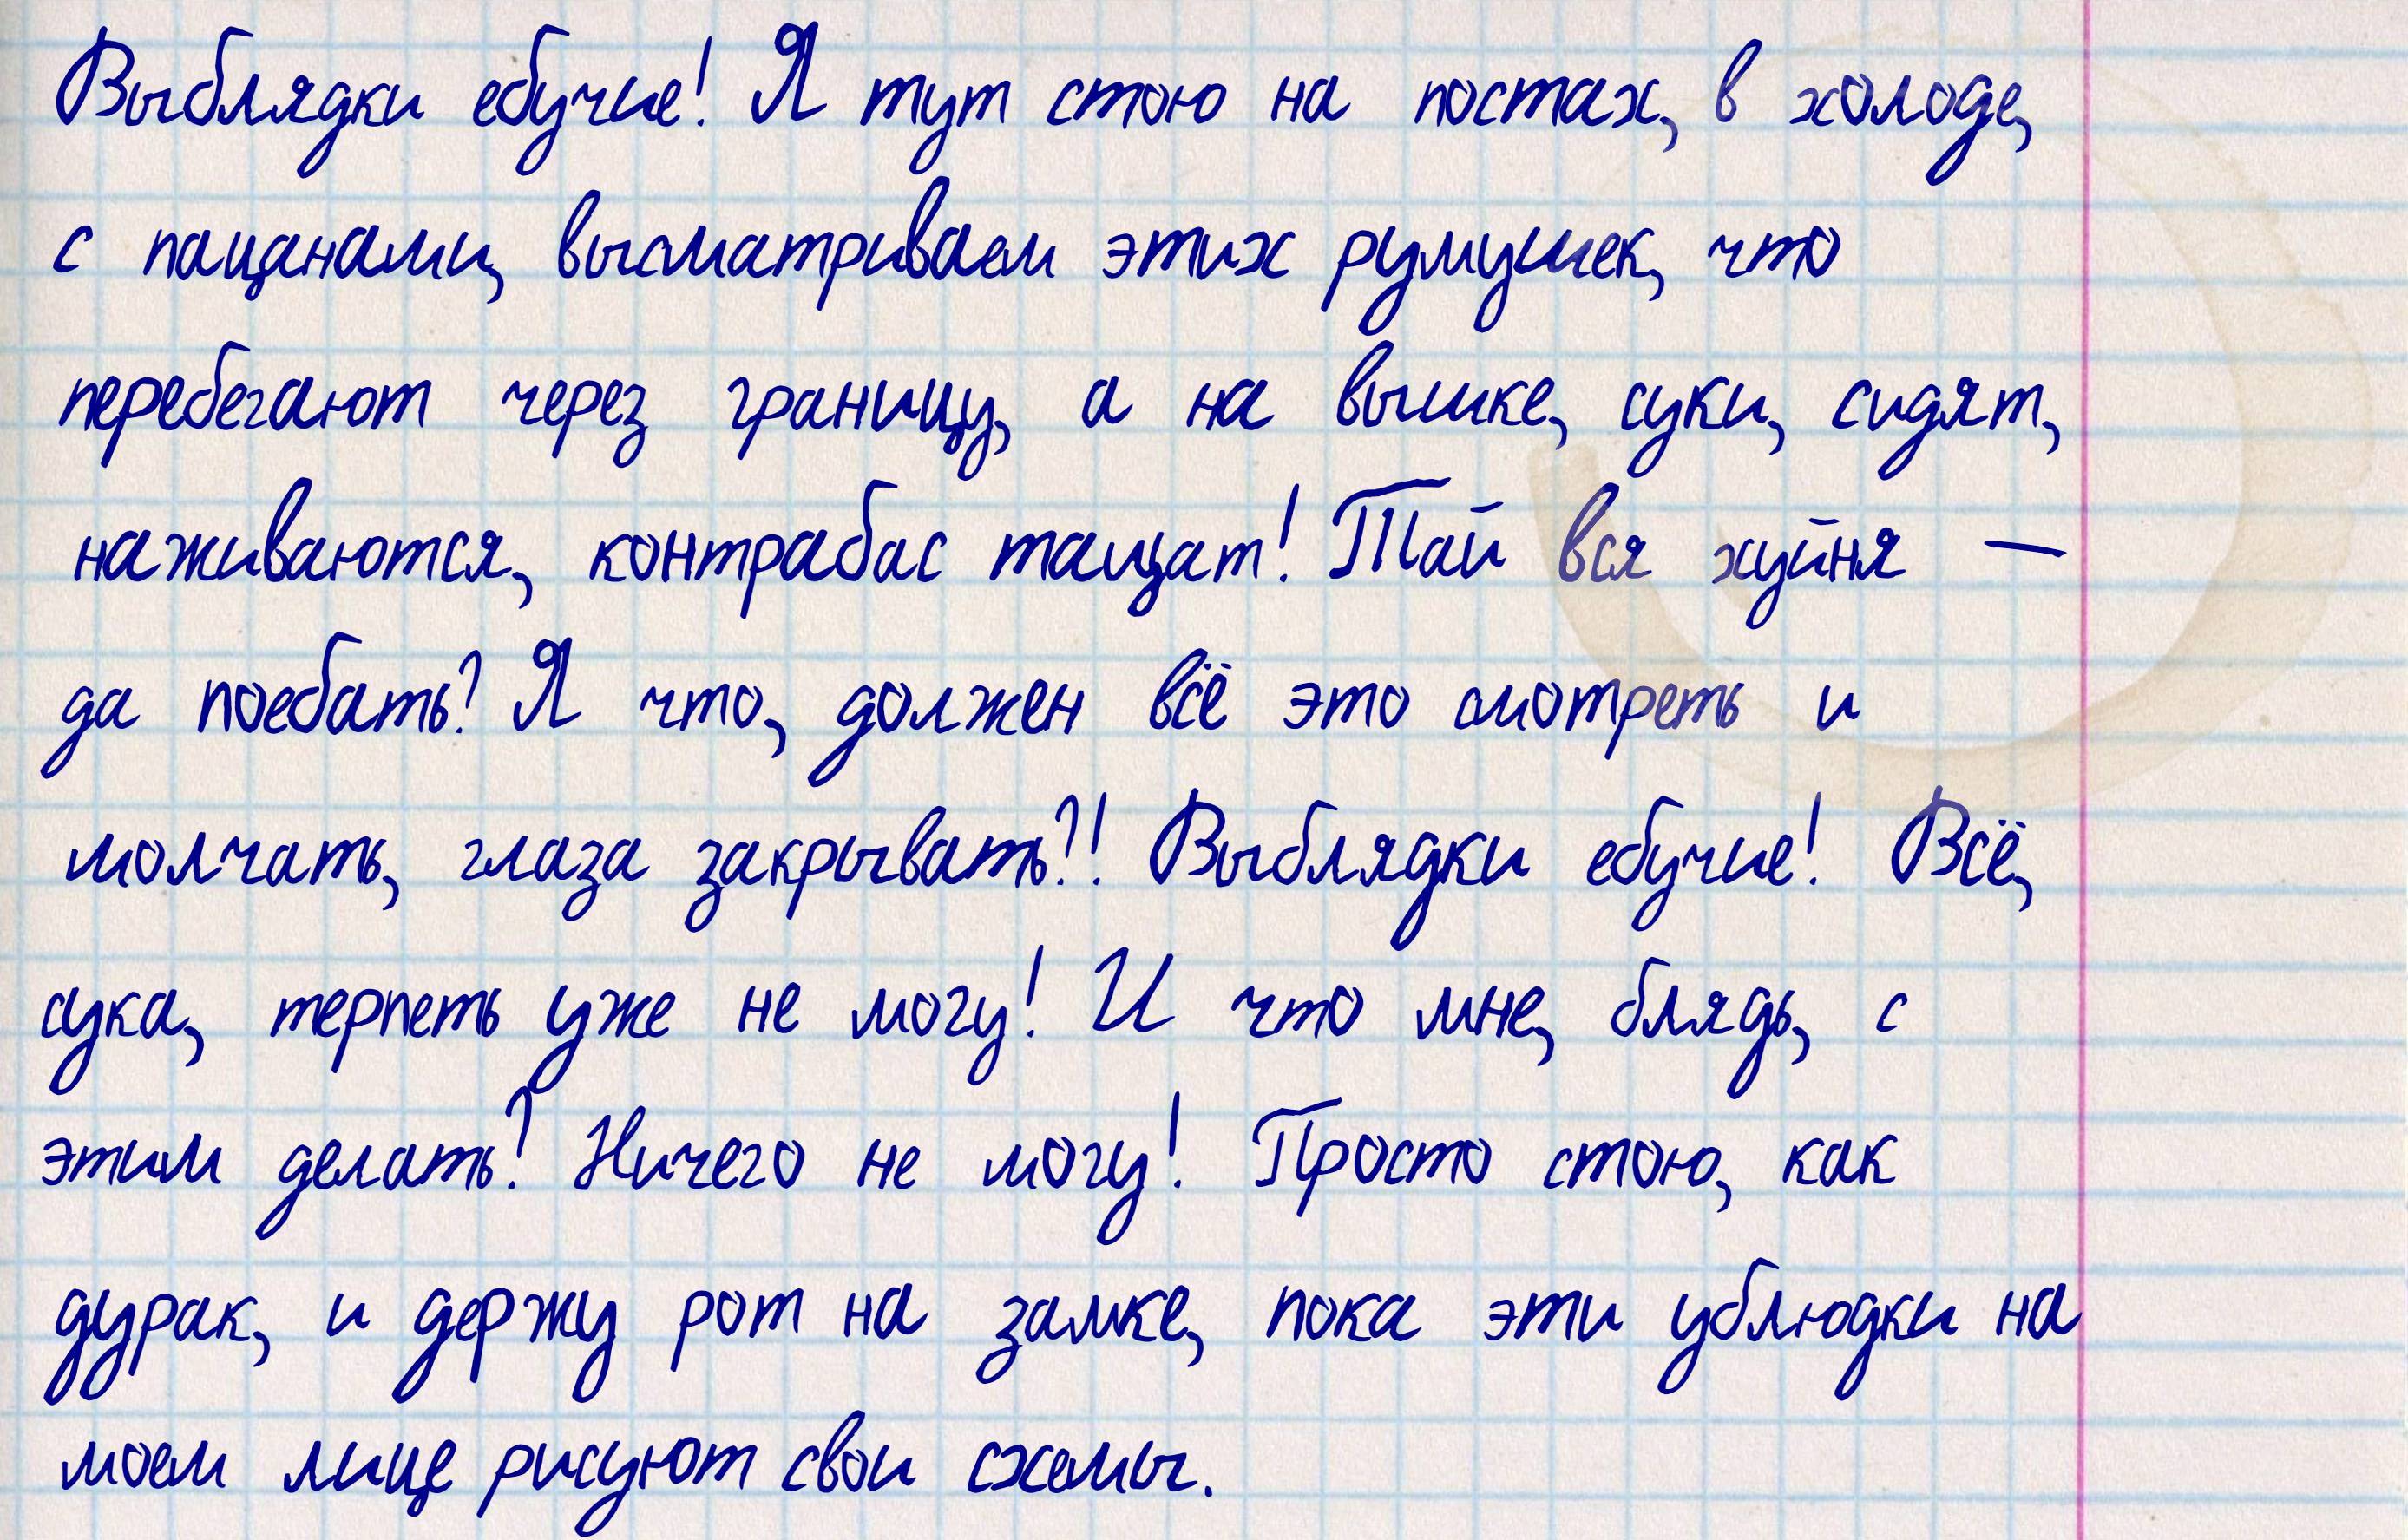 Выблядки ебучие! Я тут стою на постах, в холоде,
с пацанами, высматриваем этих румушек, что
перебегают через границу, а на вышке, суки, сидят,
наживаются, контрабас тащат! Тай вся хуйня —
да поебать? Я что, должен всё это смотреть и
молчать, глаза закрывать?! Выблядки ебучие! Всё,
сука, терпеть уже не могу! И что мне, блядь, с
этим делать? Ничего не могу! Просто стою, как
дурак, и держу рот на замке, пока эти ублюдки на
моем лице рисуют свои схемы.